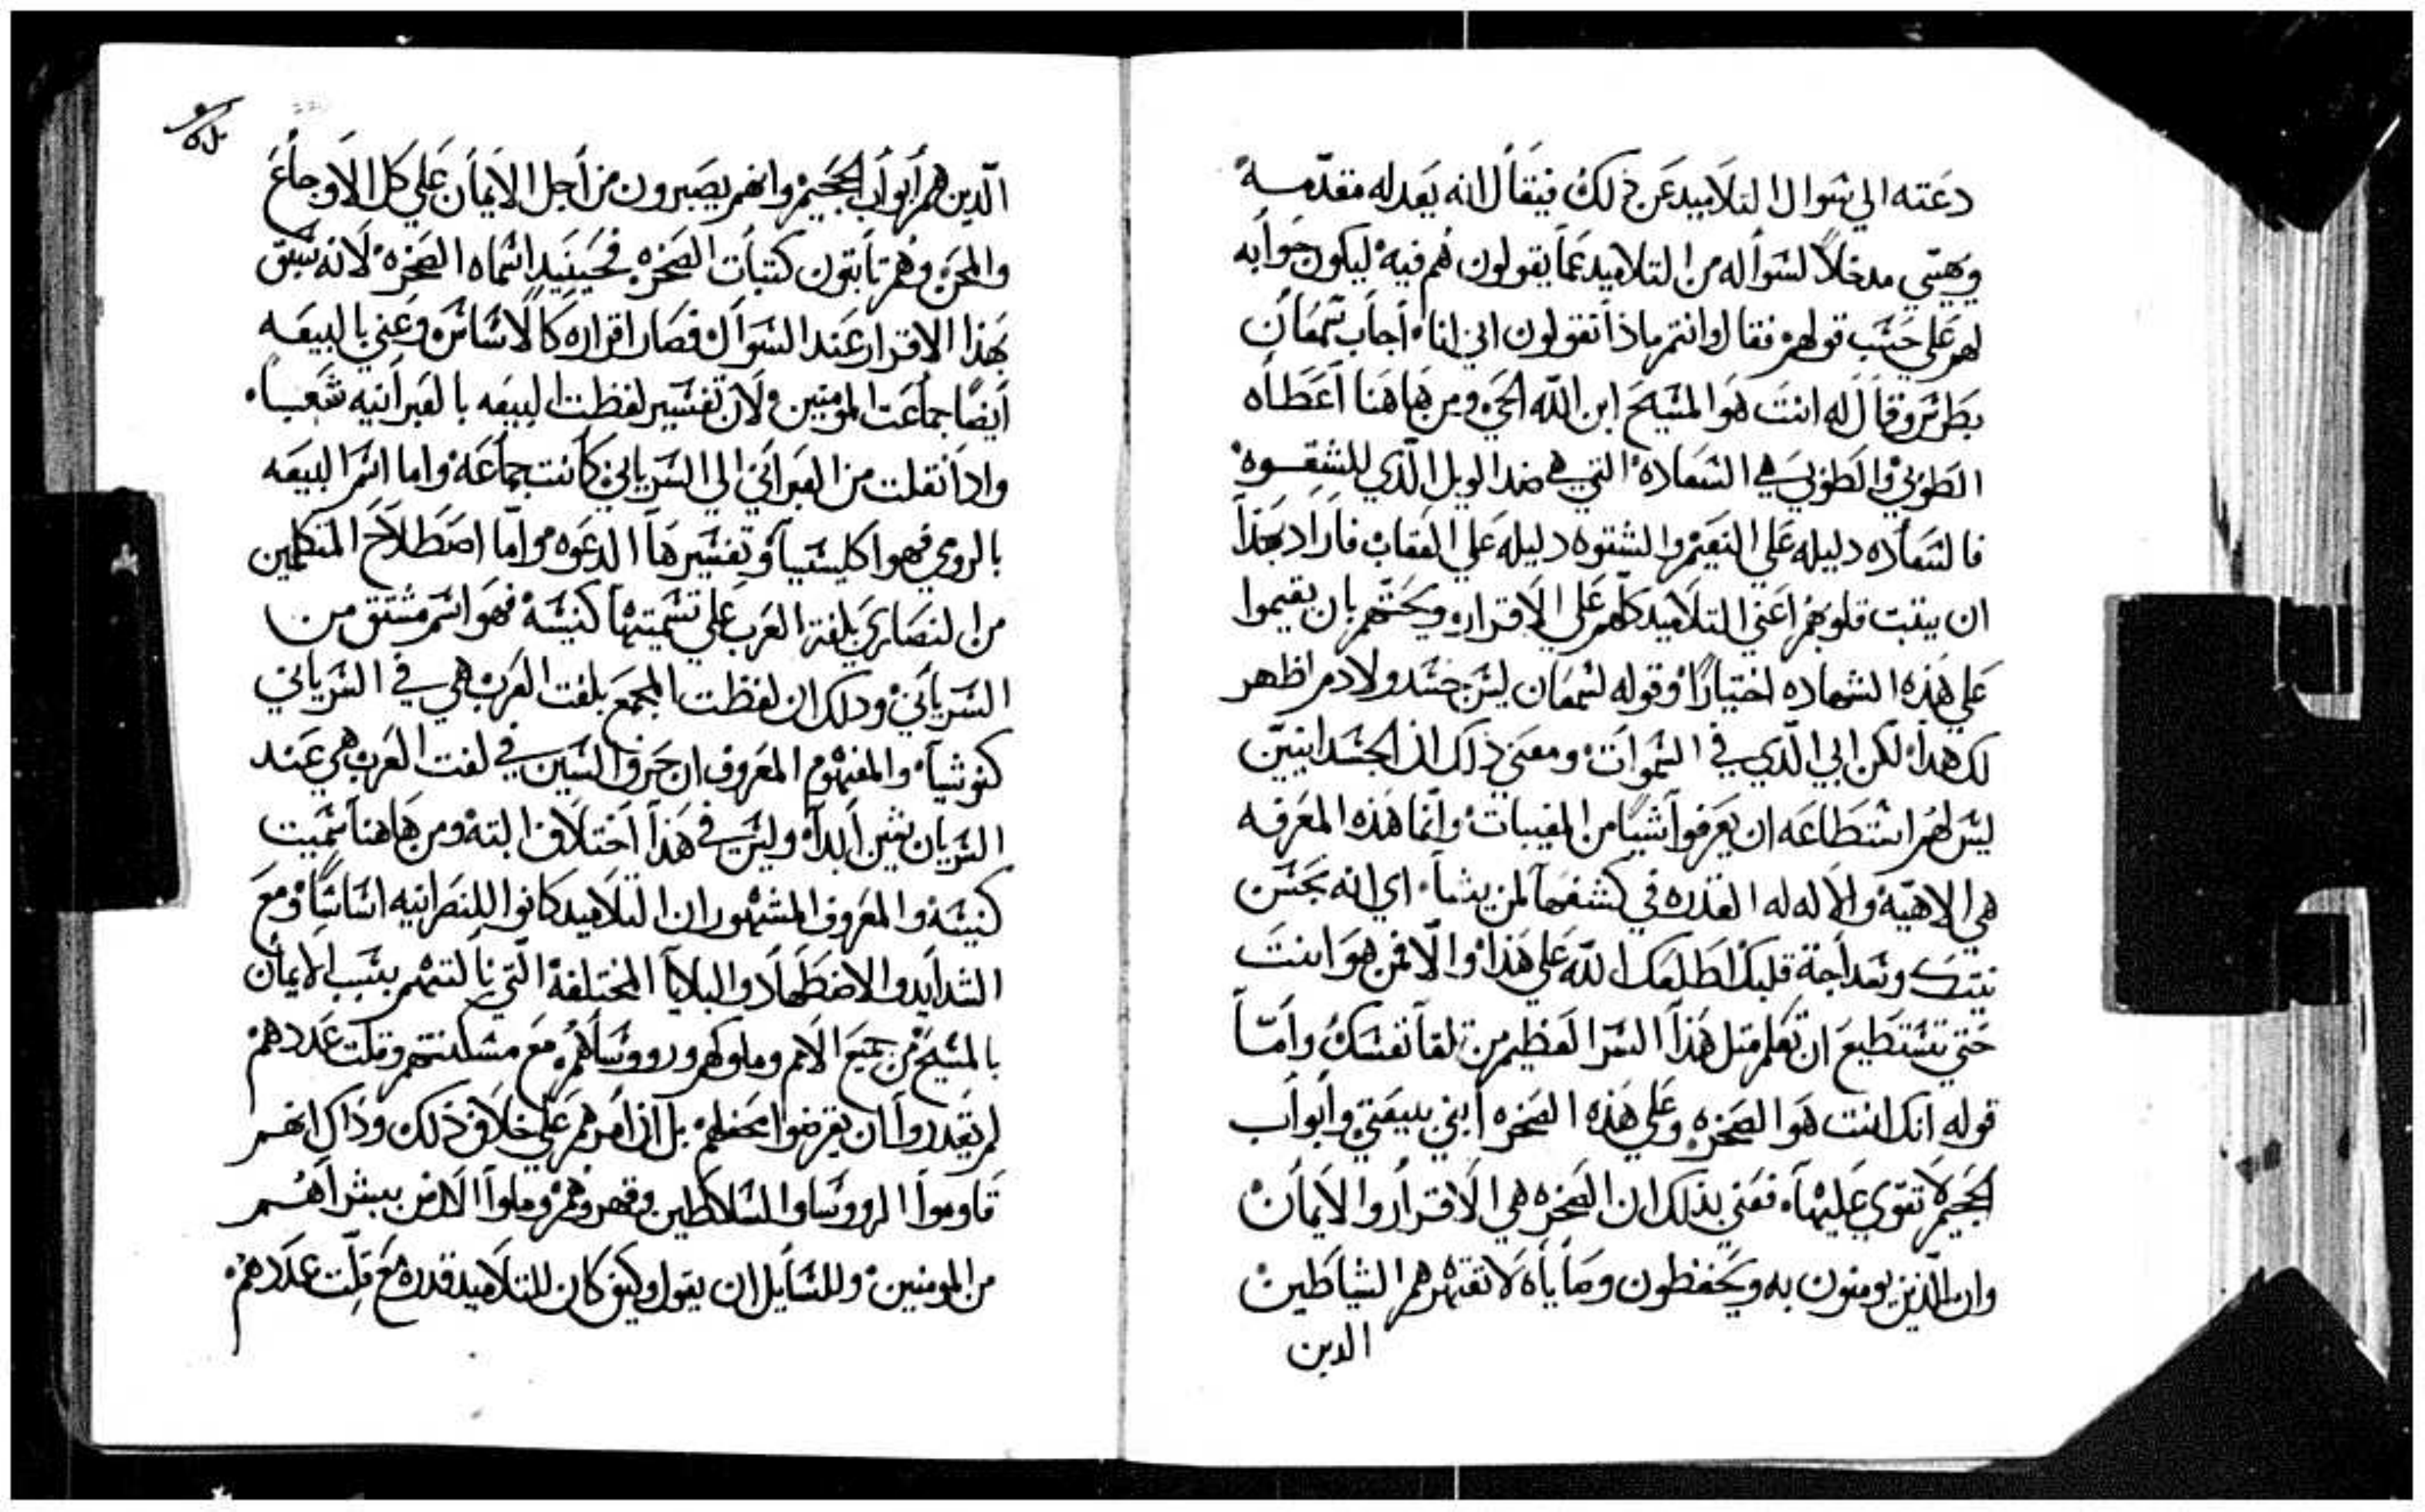 دعته الي سوال التلاميد عن ذلك فيقال انه يعد له مقدمه
ويهيي مدخلاً لسواله من التلاميد عما يقولون هم فيه ليكون جوابه
لهم علي حسب قولهم فقال وانتم ماذا تقولون اني انا اجاب سمعان
بطرس وقال له انت هو المسيح ابن الله الحي ومن هاهنا اعطاه
الطوبي والطوبي هي السعاده التي هي ضد الويل الذي للشقوه
فالسعاده دليله علي النعيم والشقوه دليله علي العقاب فاراد بهذا
ان يثبت قلوبهم اعني التلاميد كلهم علي الاقرار ويحثهم بان يقيموا
علي هذه الشهاده اختيارًا وقوله لسمعان ليس جسد ولا دم اظهر
لك هدا لكن ابي الذي في السموات ومعني ذلك ان الجسدانيين
ليس لهم استطاعه ان يعرفوا شيًا من المغيبات وانما هذه المعرفه
هي الاهيه والاله له القدره في كشفها لمن يشا اي انه بحسن
نيتك وسداجة قلبك اطلعك الله علي هذا والا فمن هو انت
حتي تستطيع ان تعلم مثل هذا السر العظيم من تلقا نفسك واما
قوله انك انت هو الصخره وعلي هذه الصخره ابني بيعتي وابواب
الجحيم لا تقوي عليها فعني بذلك ان الصخره هي الاقرار والايمان
وان الذين يومنون به ويحفظون وصاياه لا تقهرهم الشياطين
الدين
الذين هم ابواب الجحيم وانهم يصبرون من اجل الايمان علي كل الاوجاع
والمحن وهم تابتون كتبات الصخره فحينيد اسماه الصخره لانه سبق
بهذا الاقرار عند السوال فصار اقراره كالاساس وعني بالبيعه
ايضًا جماعت المومنين ولان تفسير لفظت البيعه بالعبرانيه شعبًا
وادا نقلت من العبراني الي السرياني كانت جماعه واما اسم البيعه
بالرومي فهو اكليسيا وتفسيرها الدعوه واما اصطلاح المتكلمين
من النصاري بلغة العرب علي تسميتها كنيسه فهو اسم مشتق من
السرياني ودلك ان لفظت المجمع بلغت العرب هي في السرياني
كنوشيا والمفهوم المعروف ان حرف السين في لغت العرب هي عند
السريان شين ابدا وليس في هذا اختلاف البته ومن هاهنا سميت
كنيسه والمعروف المشهور ان التلاميد كانوا للنصرانيه اساسًا ومع
الشدايد والاضطهاد والبلايا المختلفة التي نالتهم بسبب الايمان
بالمسيح من جميع الامم وملوكهم وروساهم مع مسكنتهم وقلت عددهم
لم يقدروا ان يقرضوا محفلهم بل ان امرهم علي خلاف ذلك وذاك انهم
قاوموا الروسا والسلاطين وقهروهم وملوا الارض ببشراهم
من المومنين وللسايل ان يقول وكيف كان للتلاميد قدره مع قلت عددهم